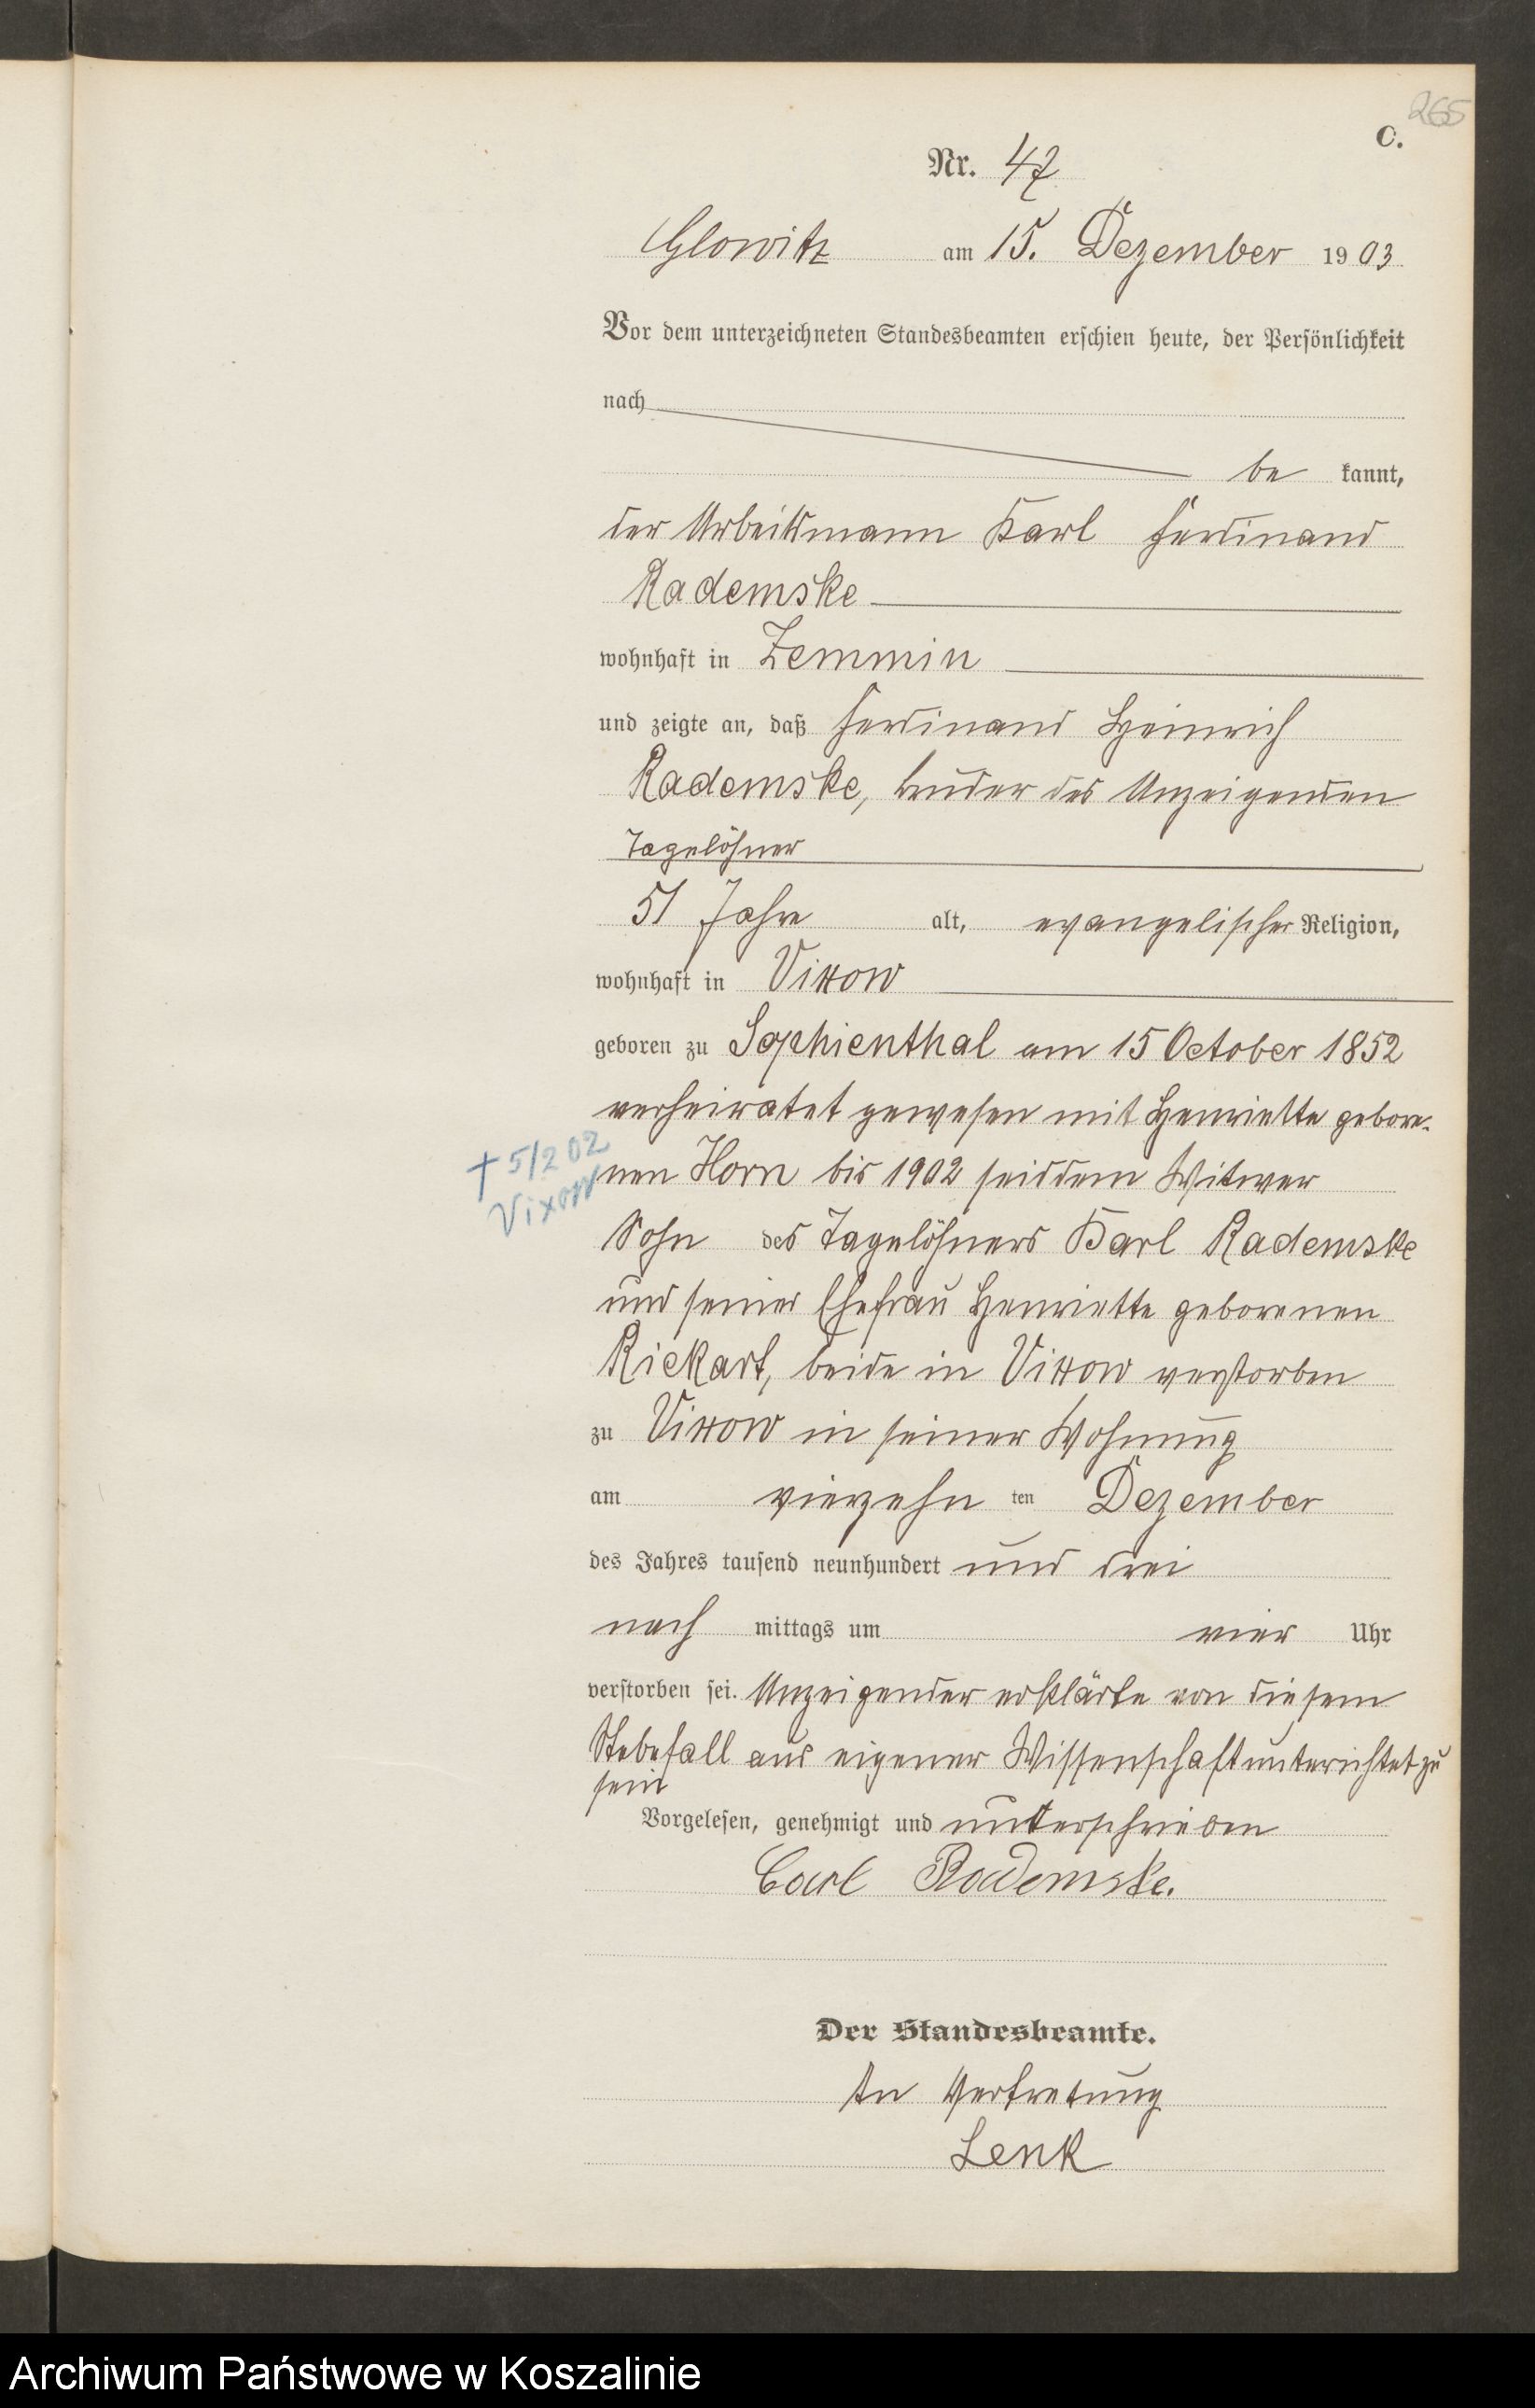 265
C.
Nr. 47
Glowitz am 15. Dezember 1903
Vor dem unterzeichneten Standesbeamten erschien heute, der Persönlichkeit
nach
be kannt,
der Arbeitsmann Karl Ferdinand
Rademske
wohnhaft in Zemmin
und zeigte an, daß Ferdinand Heinrich
Rademske, bruder des Anzeigenden
Tagelöhner
51 Jahre alt, evangelischer Religion,
wohnhaft in Vixow
geboren zu Sophienthal am 15 October 1852
verheiratet gewesen mit Henriette gebore-
nen Horn bis 1902 seiddem Witwer
+ 5/2 02
Vixow
Sohn des Tagelöhners Karl Rademske
und seiner Ehefrau Henriette geborenen
Rickart, beide in Vixow verstorben
zu Vixow in seiner Wohnung
am vierzehn ten Dezember
des Jahres tausend neunhundert und drei
nach mittags um vier Uhr
verstorben sei. Anzeigender erklärte von diesem
Stebefall aus eigener Wissenschaft unterichtet zu
sein
Vorgelesen, genehmigt und unterschrieben
Carl Rademske.
Der Standesbeamte.
In Vertretung
Lenk
Archiwum Państwowe w Koszalinie